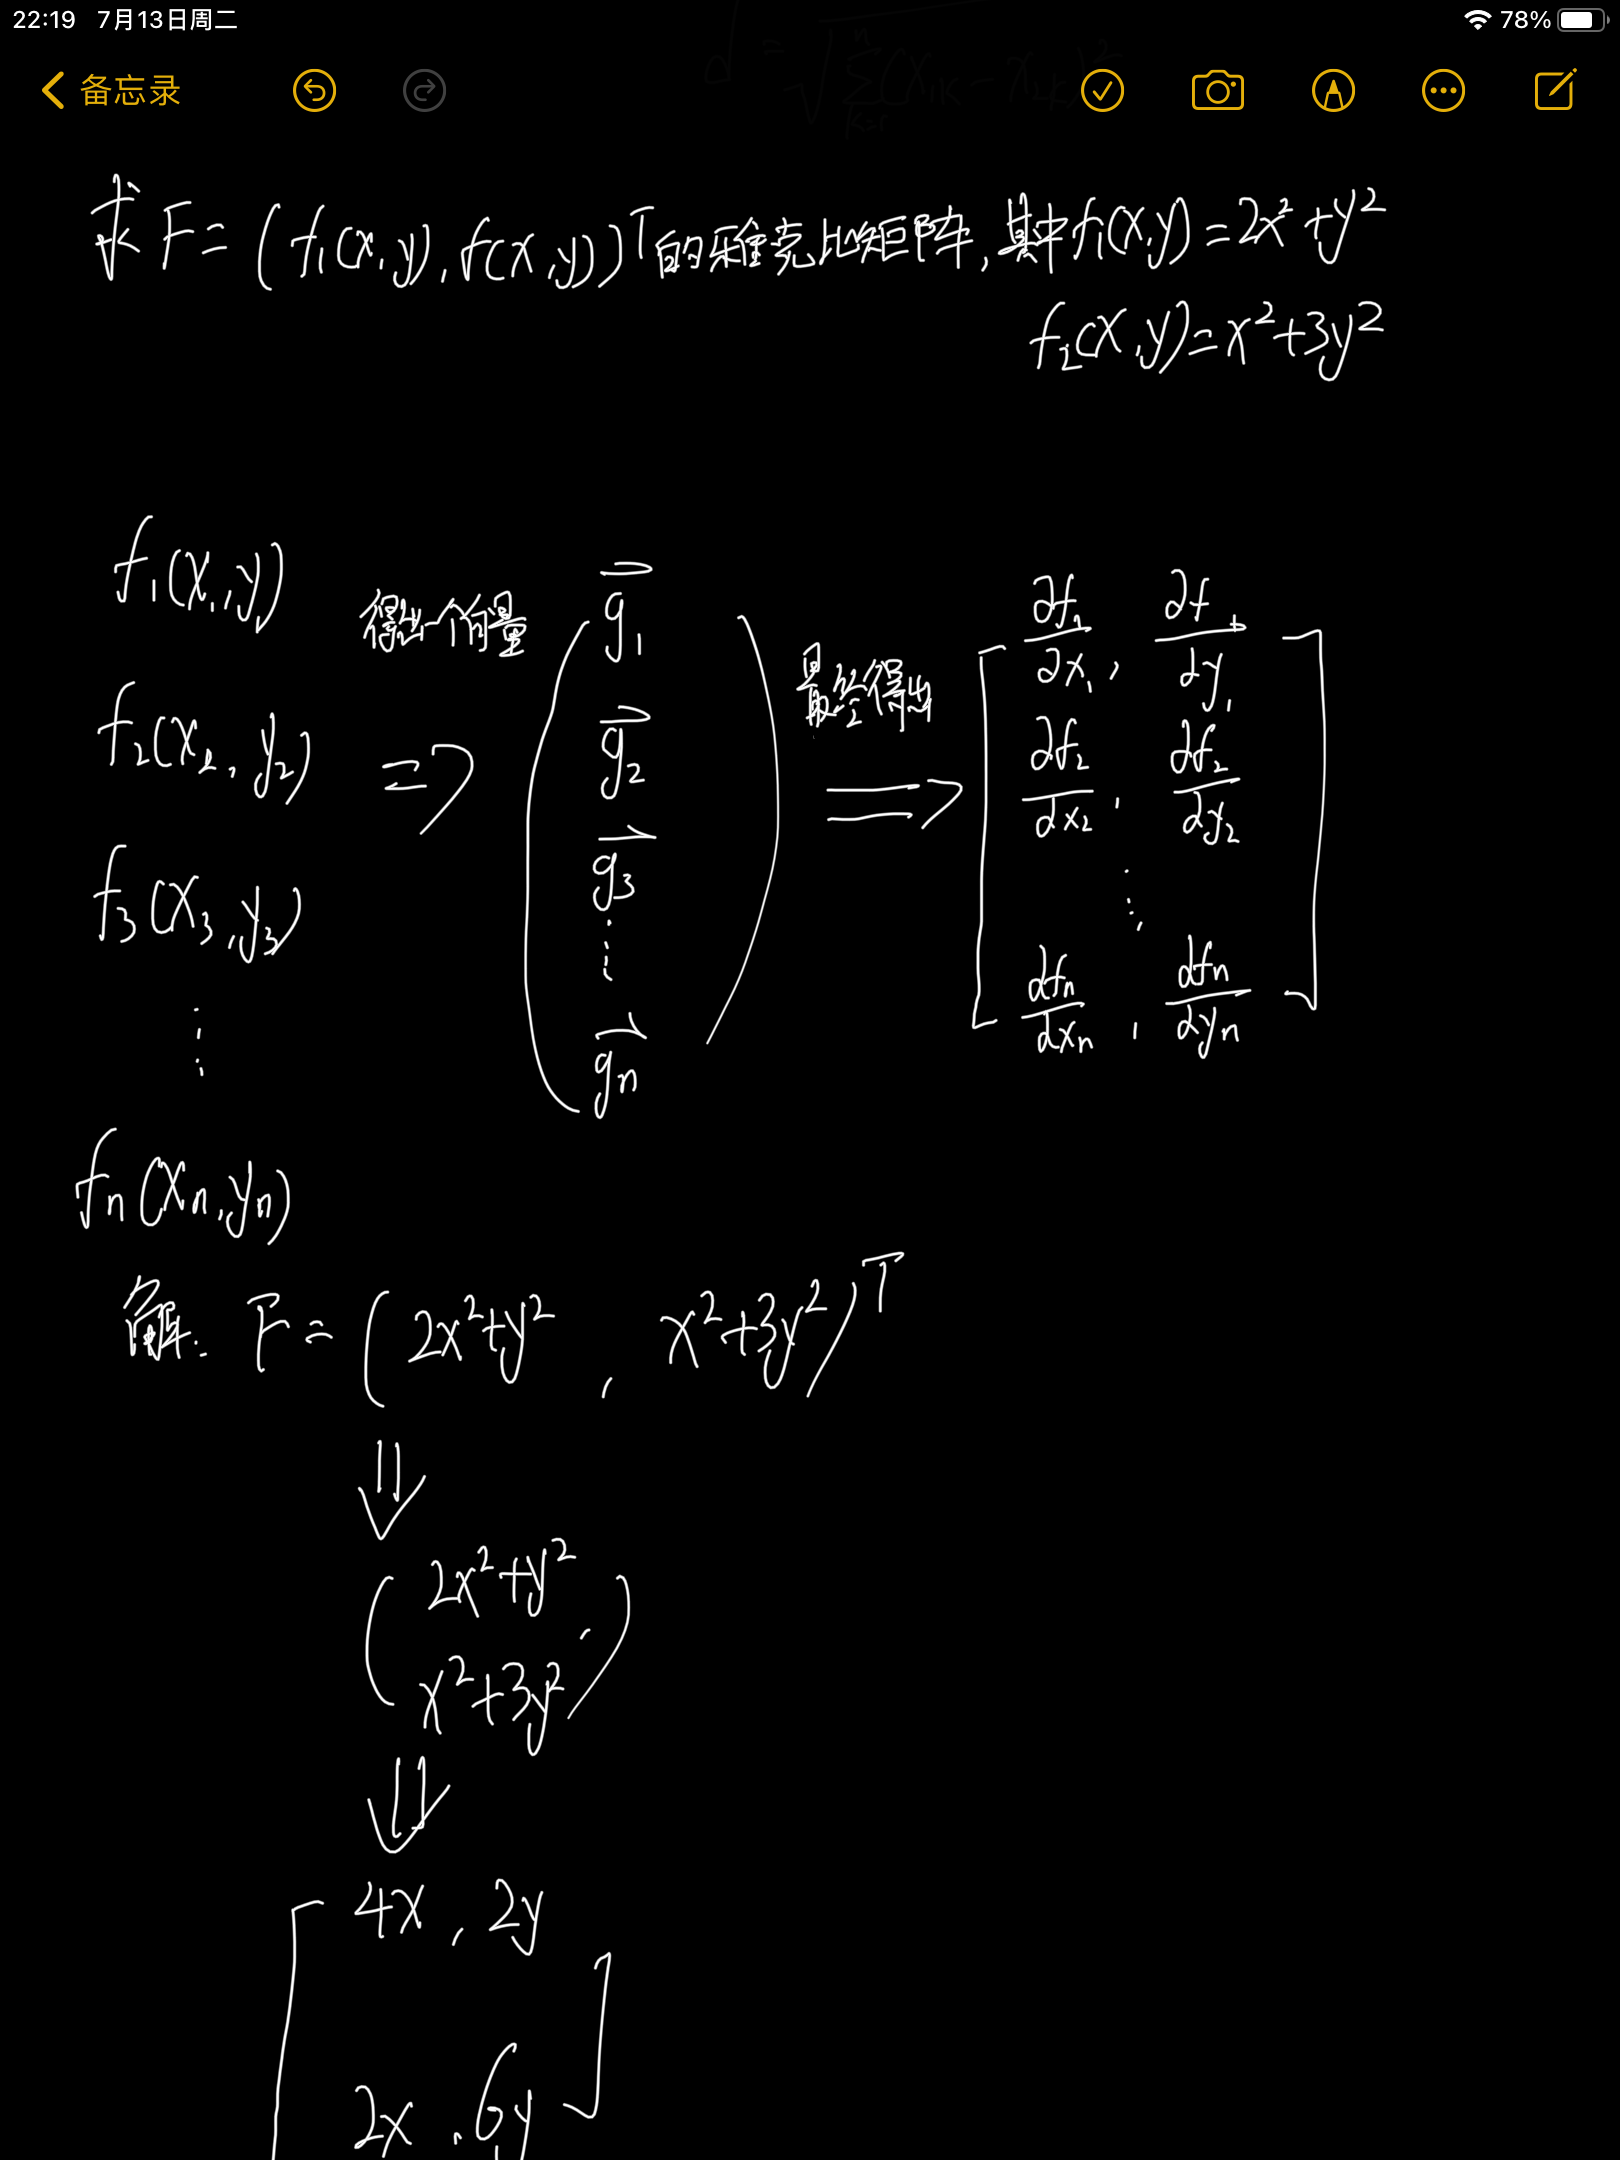 22:19 7月13日周二 78%
备忘录
求 F = (f₁(x,y), f(x,y))ᵀ的雅克比矩阵, 其中f₁(x,y)=2x²+y²
f₂(x,y)=x²+3y²
f₁(x₁,y₁)
f₂(x₂,y₂)
f₃(x₃,y₃)
⋮
fn(xn,yn)
得出一个向量
=>
g₁
g₂
g₃
⋮
gn
最终得出
=>
∂f₁/∂x₁, ∂f₁/∂y₁
∂f₂/∂x₂, ∂f₂/∂y₂
⋮
∂fn/∂xn, ∂fn/∂yn
解: F = (2x²+y², x²+3y²)ᵀ
⇓
(2x²+y²
x²+3y²)
⇓
[4x, 2y
2x, 6y]